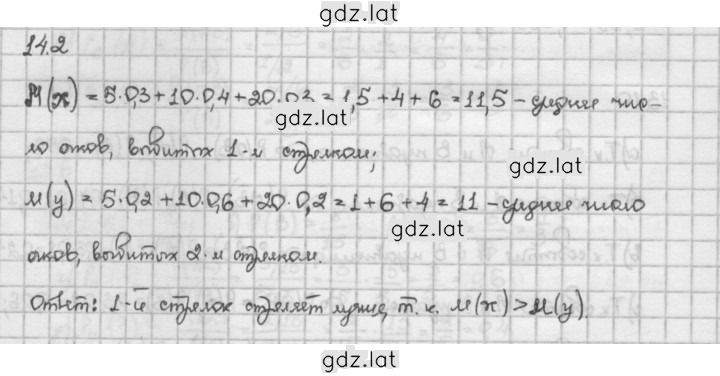 gdz.lat
14.2
M(x) = 5·0,3+10·0,4+20·0,3=1,5+4+6=11,5 – среднее чис-
gdz.lat
ло очков, выбитых 1-м стрелком;
gdz.lat
M(y) = 5·0,2+10·0,6+20·0,2=1+6+4=11 – среднее число
gdz.lat
очков, выбитых 2-м стрелком.
Ответ: 1-й стрелок стреляет лучше, т.к. M(x)>M(y).
gdz.lat